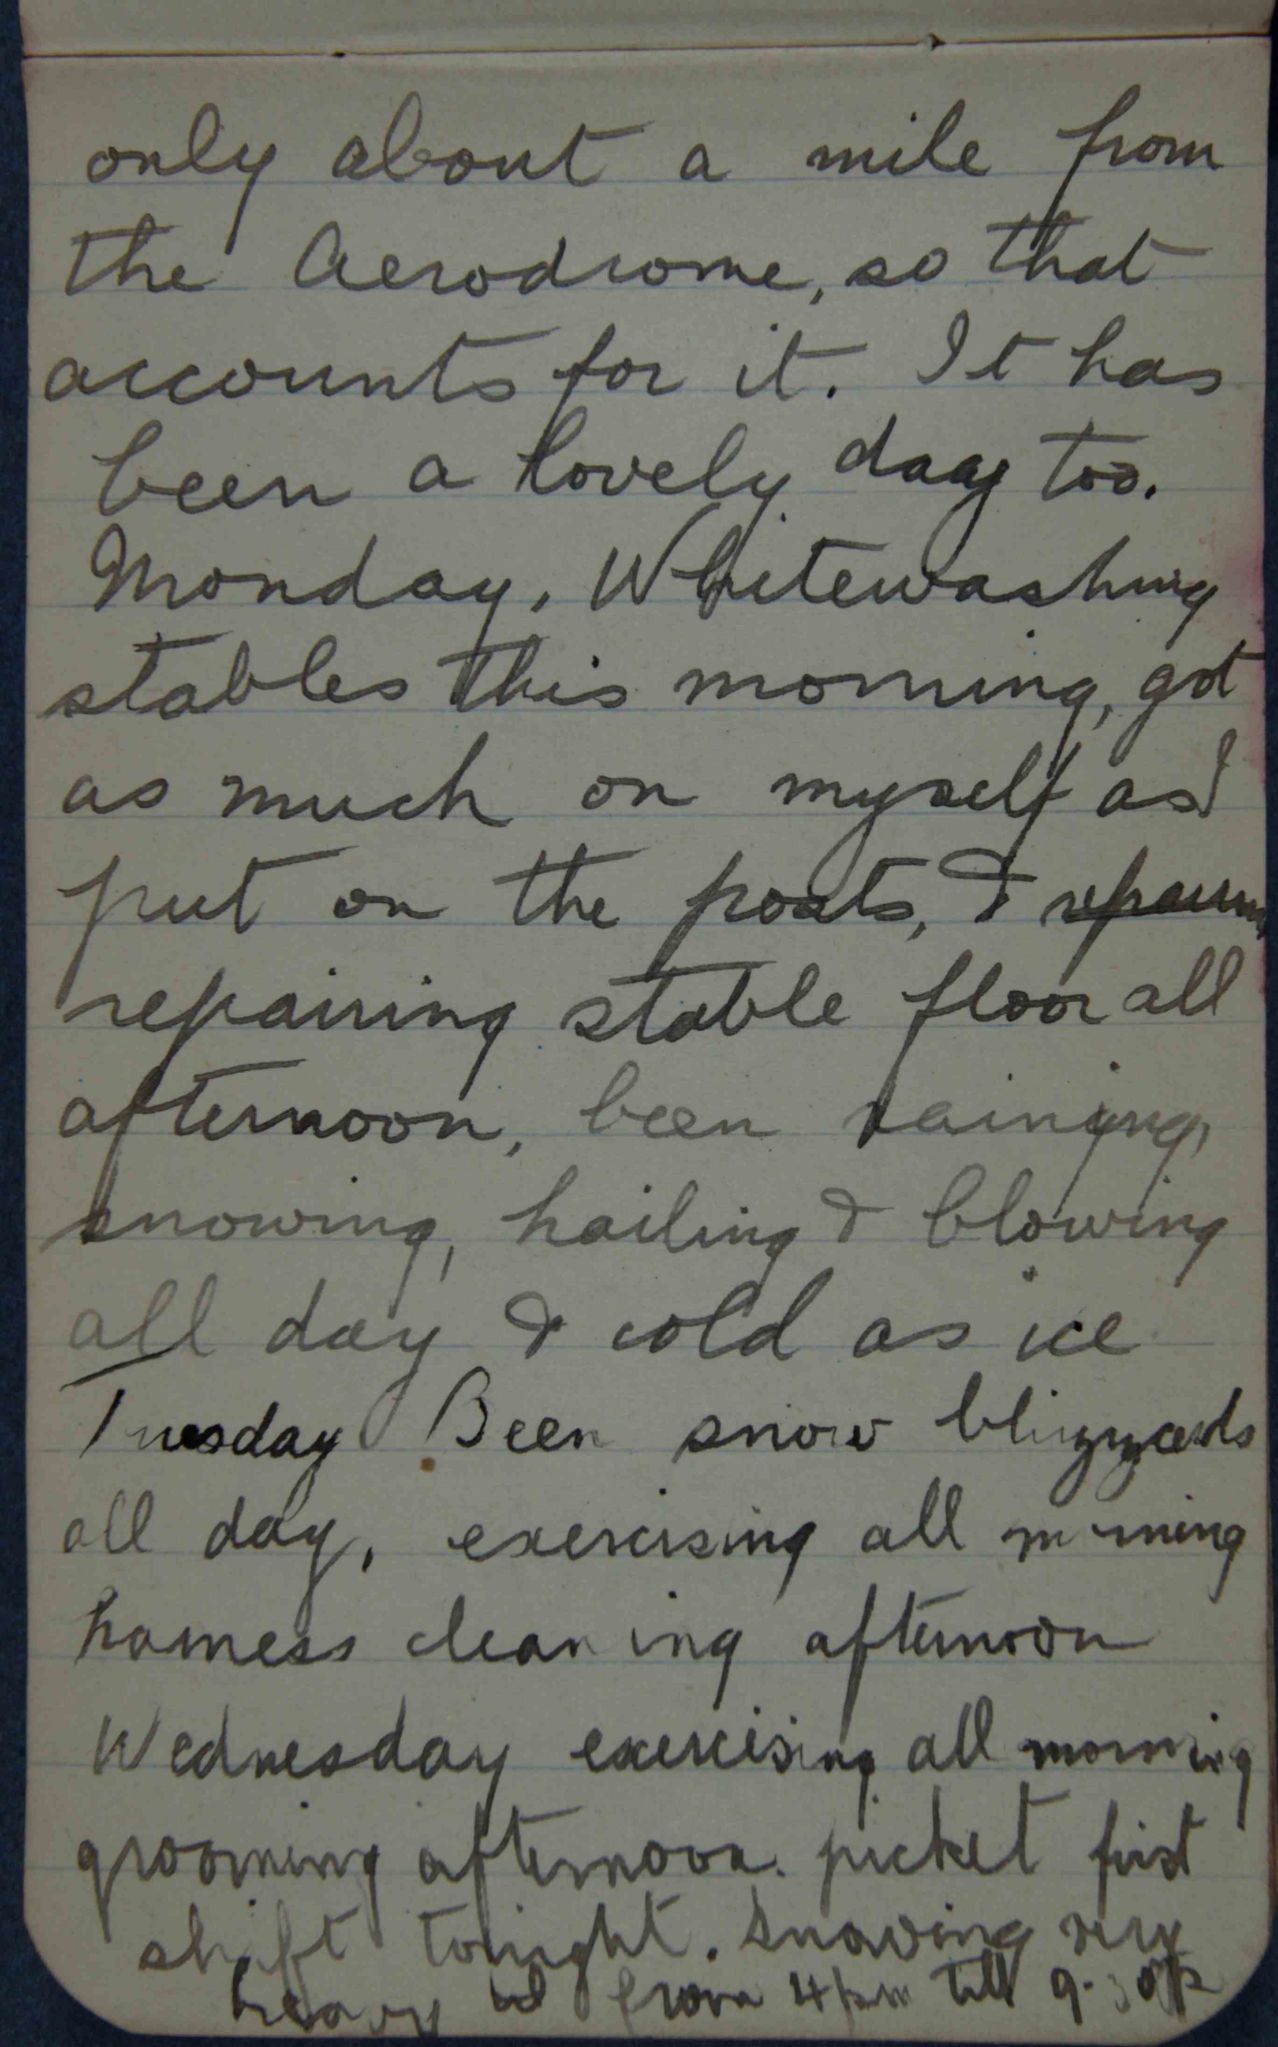 only about a mile from
the Aerodrome, so that
accounts for it. It has
been a lovely day too.
Monday, Whitewashing
stables this morning, got
as much on myself as I
put on the posts, &
repairing stable floor all
afternoon, been raining,
snowing, hailing & blowing
all day & cold as ice
Tuesday Been snow blizzards
all day, exercising all morning
harness cleaning afternoon
Wednesday exercising all morning
grooming afternoon. picket first
shift tonight. Snowing very
heavy from 4 pm till 9-30